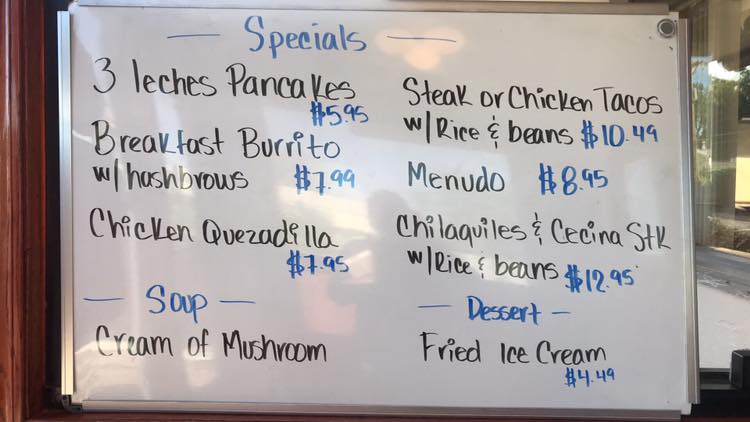 Specials
3 leches Pancakes
$5.95
Breakfast Burrito
w/hashbrows $7.99
Chicken Quezadilla
$7.95
Soup
Cream of Mushroom
Steak or Chicken Tacos
w/Rice & beans $10.49
Menudo $8.95
Chilaquiles & Cecina Stk
w/Rice & beans $12.95
Dessert
Fried Ice Cream
$4.49